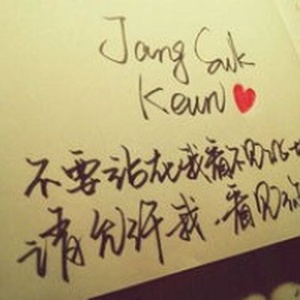 Jang Suk
Keun
不要站在我看不见的地
请允许我.看见你